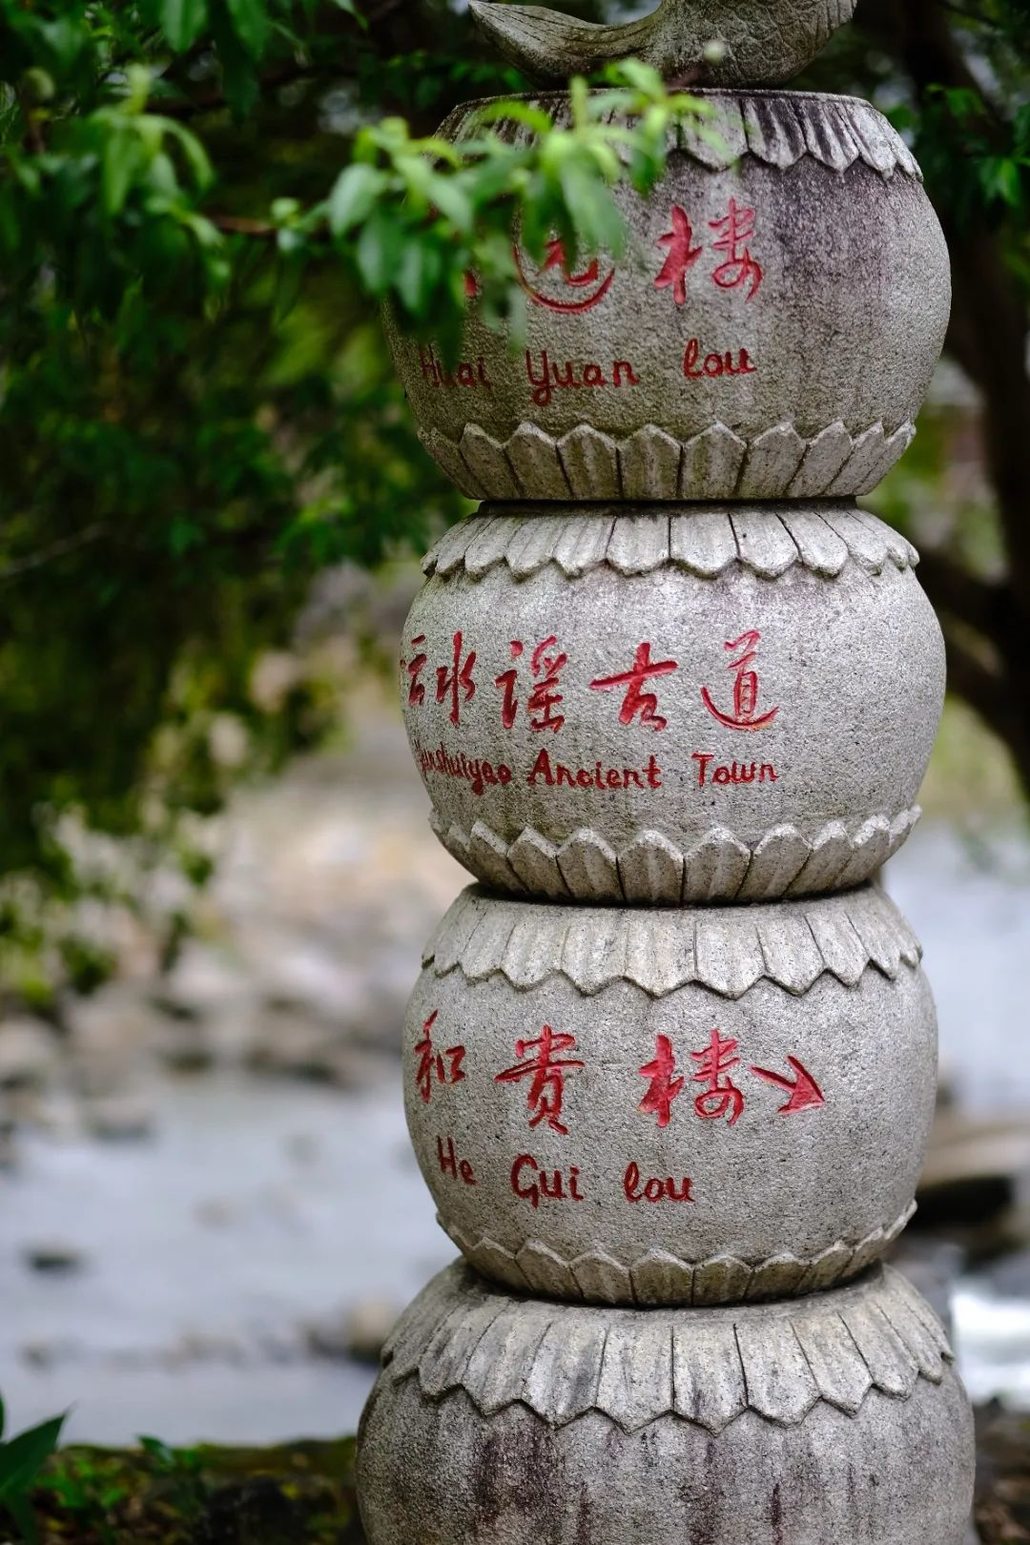 远楼
Huai Yuan lou
云水谣古道
Yunshuiyao Ancient Town
和贵楼→
He Gui lou